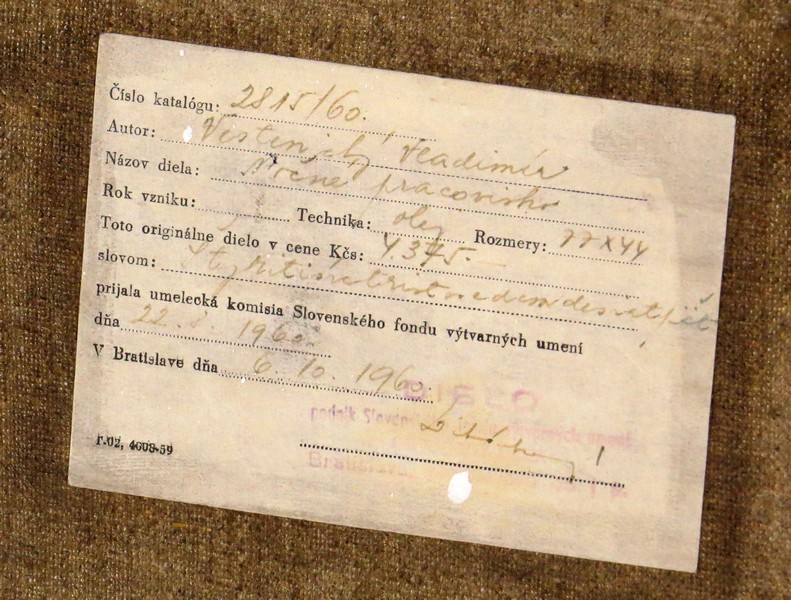 Číslo katalógu: 2815/60.
Autor: Vestenický Vladimír
Názov diela: Nočné pracovisko
Rok vzniku: Technika: olej Rozmery: 77x44
Toto originálne dielo v cene Kčs: 4.375.-
slovom: štyritisíctristosedemdesiatpäť
prijala umelecká komisia Slovenského fondu výtvarných umení
dňa 22. 1960.
V Bratislave dňa 6. 10. 1960.
DIELO
podnik Sloven
Bratislava
r.02, 4608-59